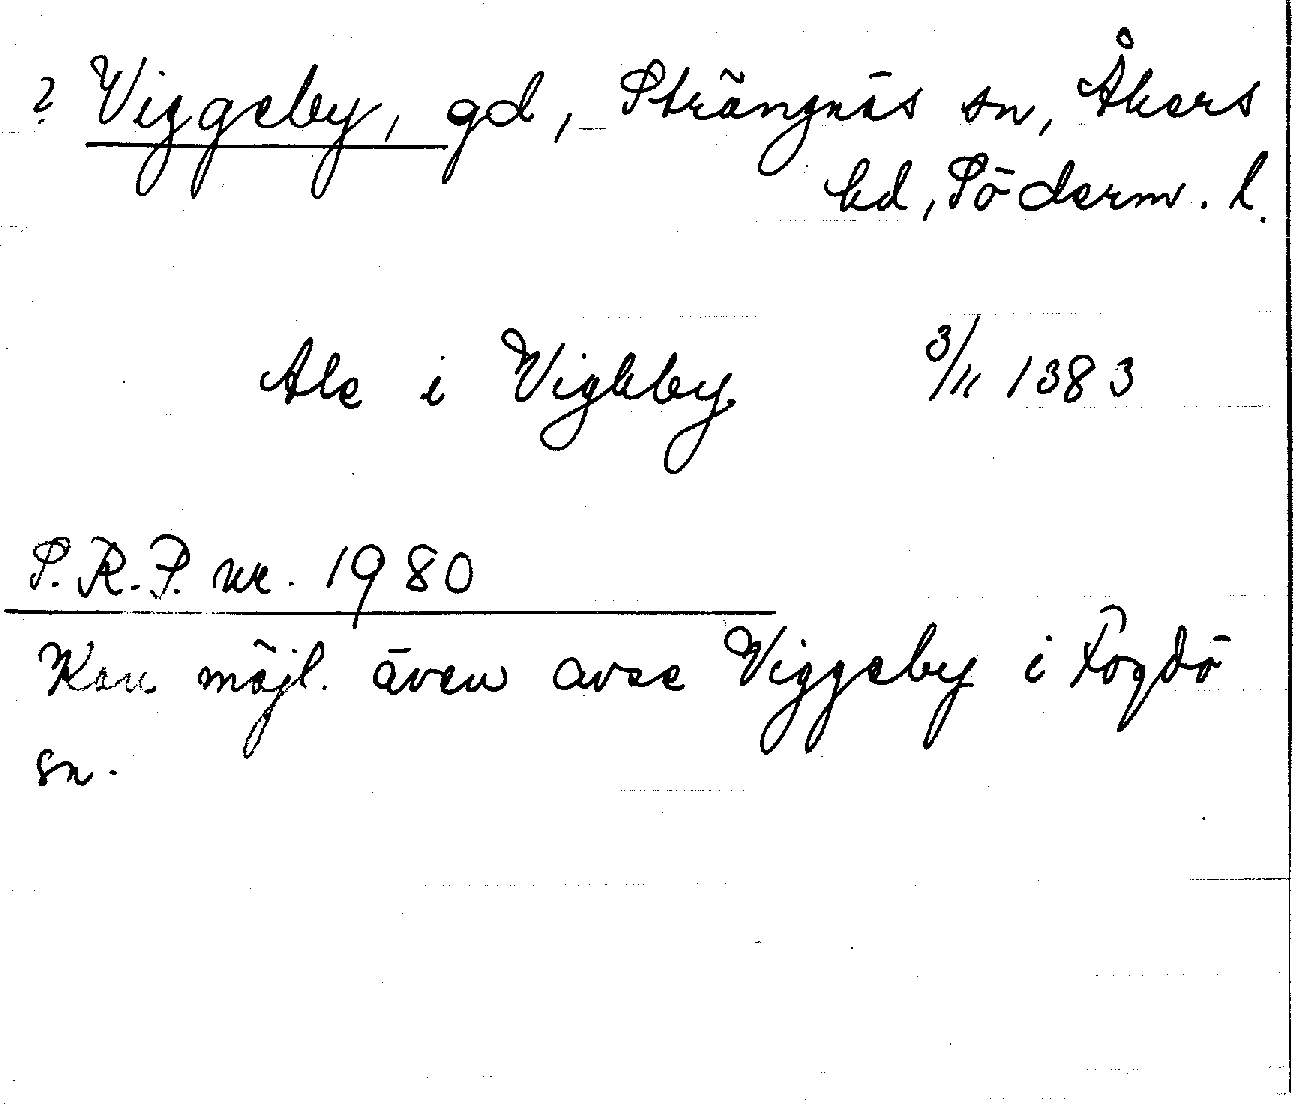 ? Viggeby, gd, Strängnäs sn, Åkers
hd, Söderm. l.
Ale i Vigbby 3/11 1383
S.R.P. nr. 1980
Kan möjl. även avse Viggeby i Fogdö
sn.